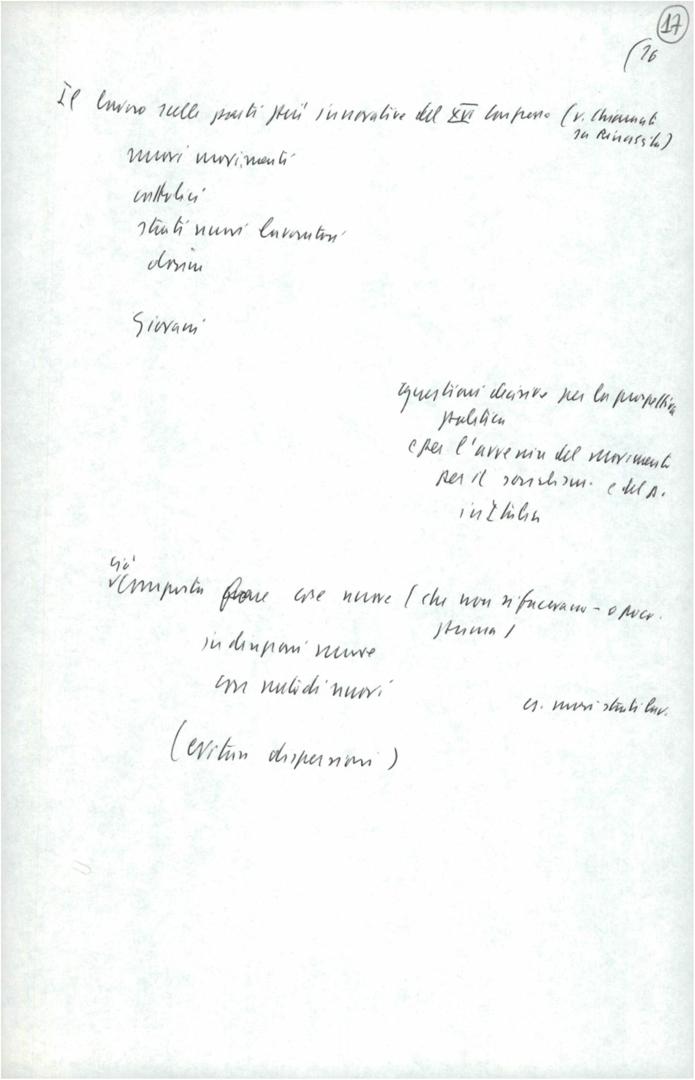 17
(16
Il lavoro sulle parti più innovative del XVI Congresso (v. Chiarante
su Rinascita)
nuovi movimenti
cattolici
strati nuovi lavoratori
donne
Giovani
questioni decisive per la prospettiva
politica
e per l'avvenire del movimento
per il socialismo e del p.
in Italia
Ciò
comporta fare cose nuove (che non si facevano - o poco.
prima)
in direzioni nuove
con metodi nuovi
es. nuovi strati lav.
(evitare dispersioni)